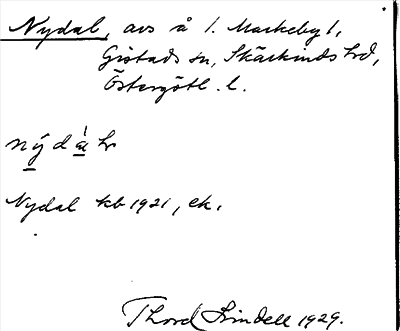 Nydal, avs å 1. Markeby 1,
Gistads sn, Skärkinds hd,
Östergötl. l.
Nydal kb 1921, ek.
Thord Lindell 1929.